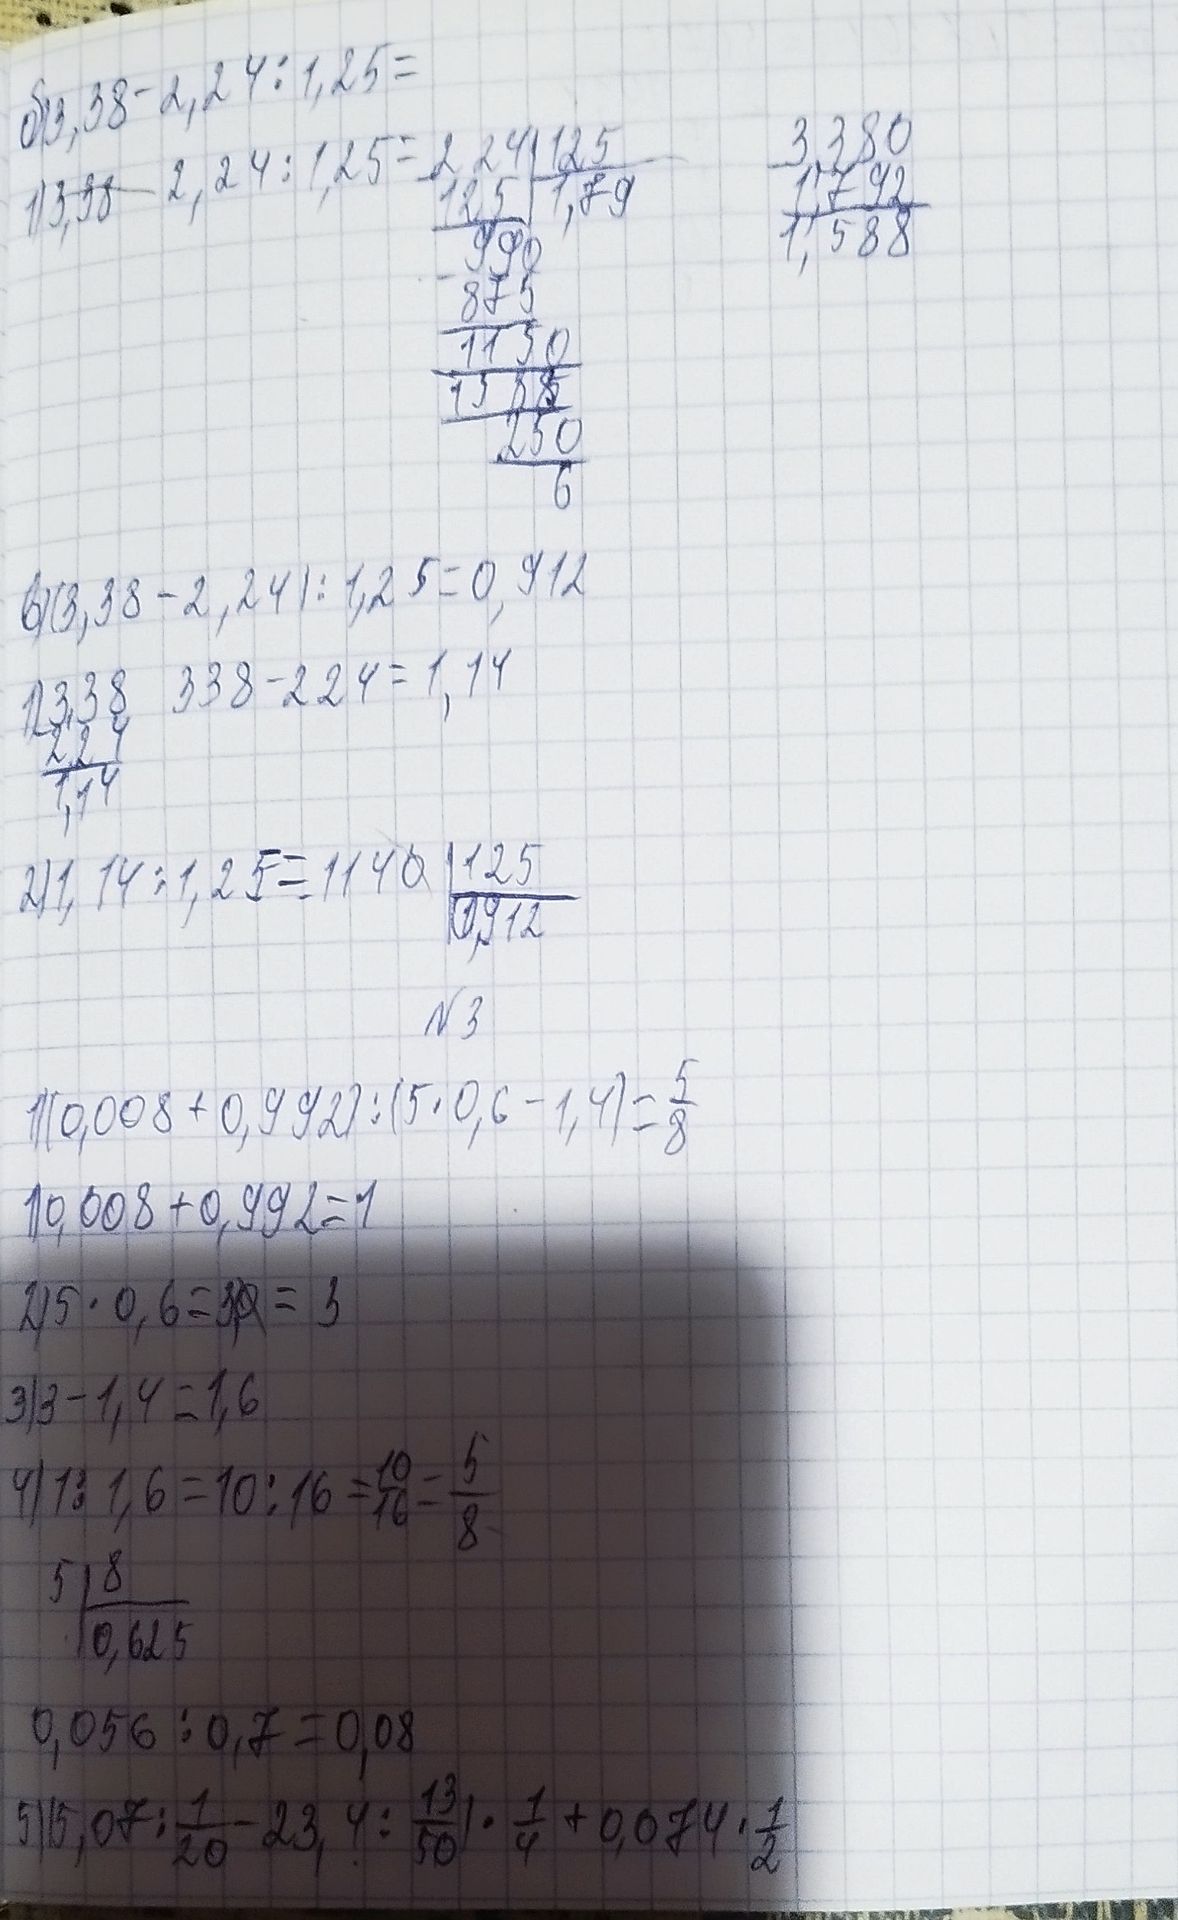 б) 3,38 - 2,24 : 1,25 =
1) 3,38 - 2,24 : 1,25 = 2,24 | 125
125 | 1,79
990
- 875
1150
250
6
3,380
1,792
1,588
в) (3,38 - 2,24) : 1,25 = 0,912
1) 3,38 338 - 224 = 1,14
2,24
1,14
2) 1,14 : 1,25 = 1140 | 125
0,912
N3
1) (0,008 + 0,992) : (5 · 0,6 - 1,4) = 5/8
1) 0,008 + 0,992 = 1
2) 5 · 0,6 = 3,0 = 3
3) 3 - 1,4 = 1,6
4) 1 : 1,6 = 10 : 16 = 10/16 = 5/8
5 | 8
0,625
0,056 : 0,7 = 0,08
5) (5,07 : 1/20 - 23,4 : 13/50) · 1/4 + 0,074 · 1/2